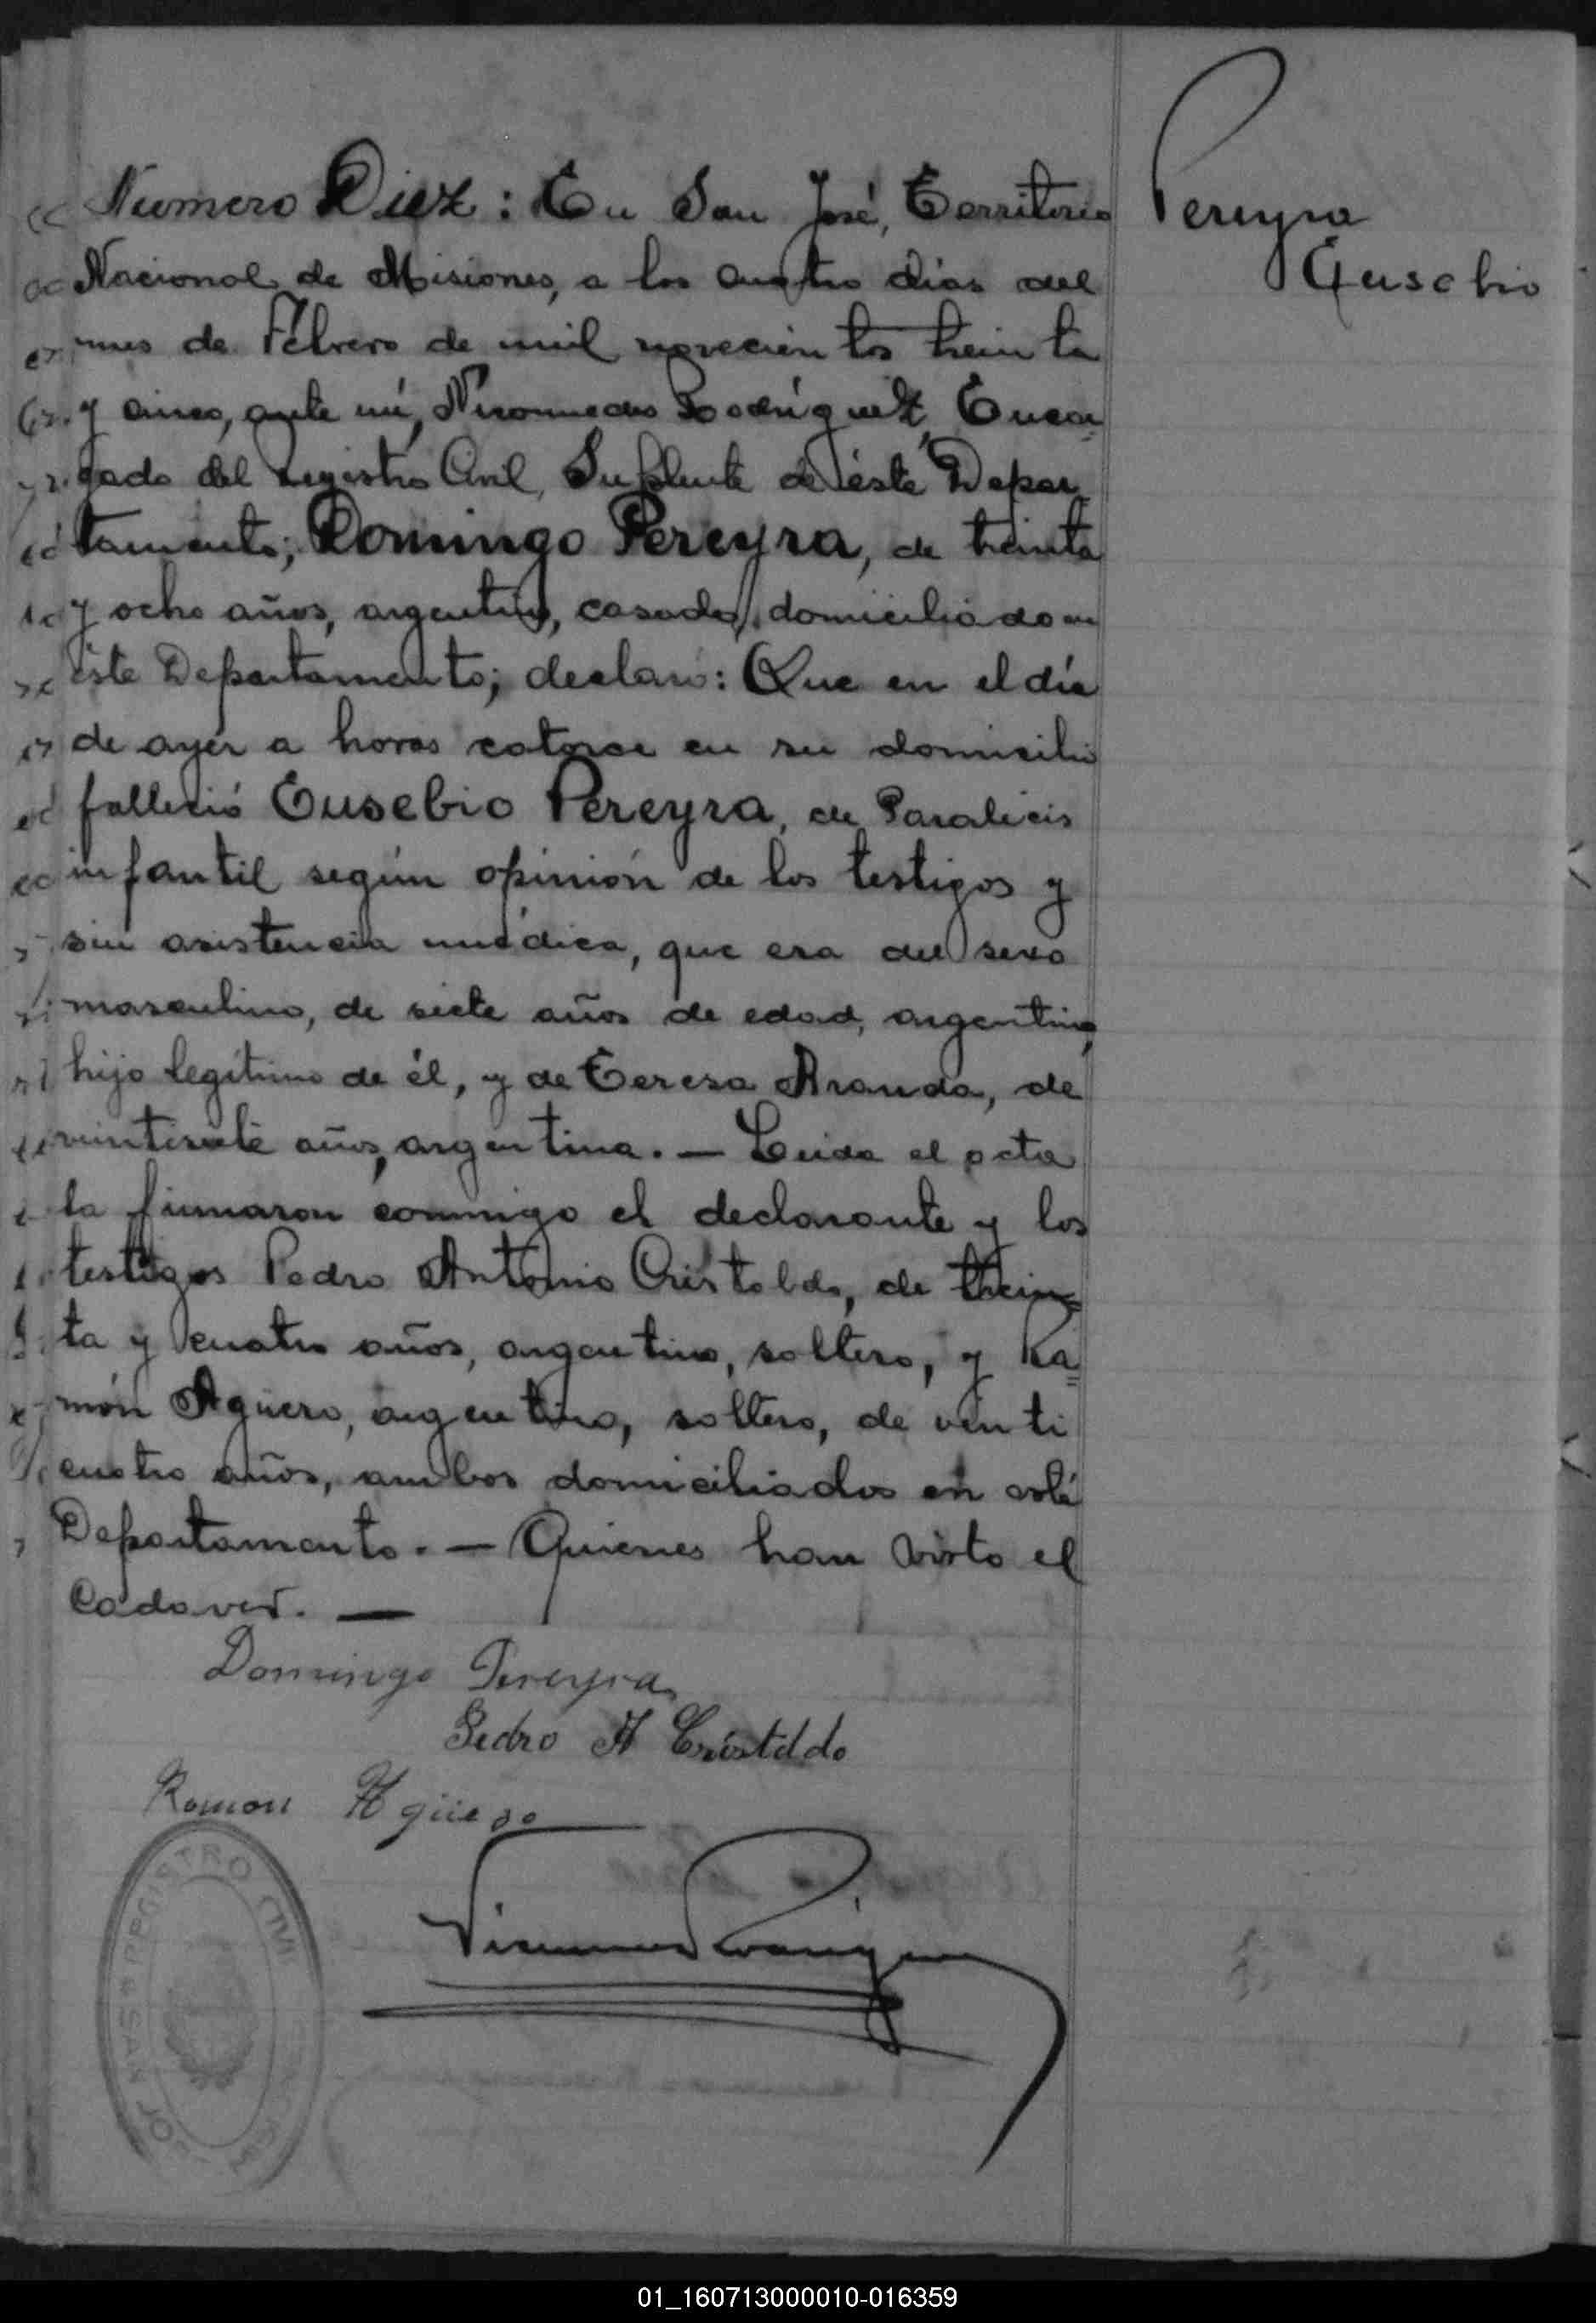 Numero Diez: En San José, Territorio
Nacional de Misiones, a los cuatro días del
mes de Febrero de mil novecientos treinta
y cinco, ante mí, Nicomedes Rodríguez, Encar=
gado del Registro Civil, Suplente de éste Depar
tamento; Domingo Pereyra, de treinta
y ocho años, argentino, casado, domiciliado en
éste Departamento; declaró: Que en el día
de ayer a horas catorce en su domicilio
falleció Eusebio Pereyra, de Paralicis
infantil según opinión de los testigos y
sin asistencia médica, que era del sexo
masculino, de siete años de edad, argentino,
hijo legítimo de él, y de Teresa Aranda, de
años, argentina. — Leida el acta
la firmaron conmigo el declarante y los
testigos Pedro Antonio Cristaldo, de trein=
ta y cuatro años, argentino, soltero, y Ra=
món Agüero, argentino, soltero, de venti
cuatro años, ambos domiciliados en esté
Departamento. — Quienes han visto el
Cadaver. —
Domingo Pereyra
Pedro A Cristaldo
Ramon Agüero
Pereyra
Eusebio
REGISTRO CIVIL
SAN JOSÉ
01_160713000010-016359